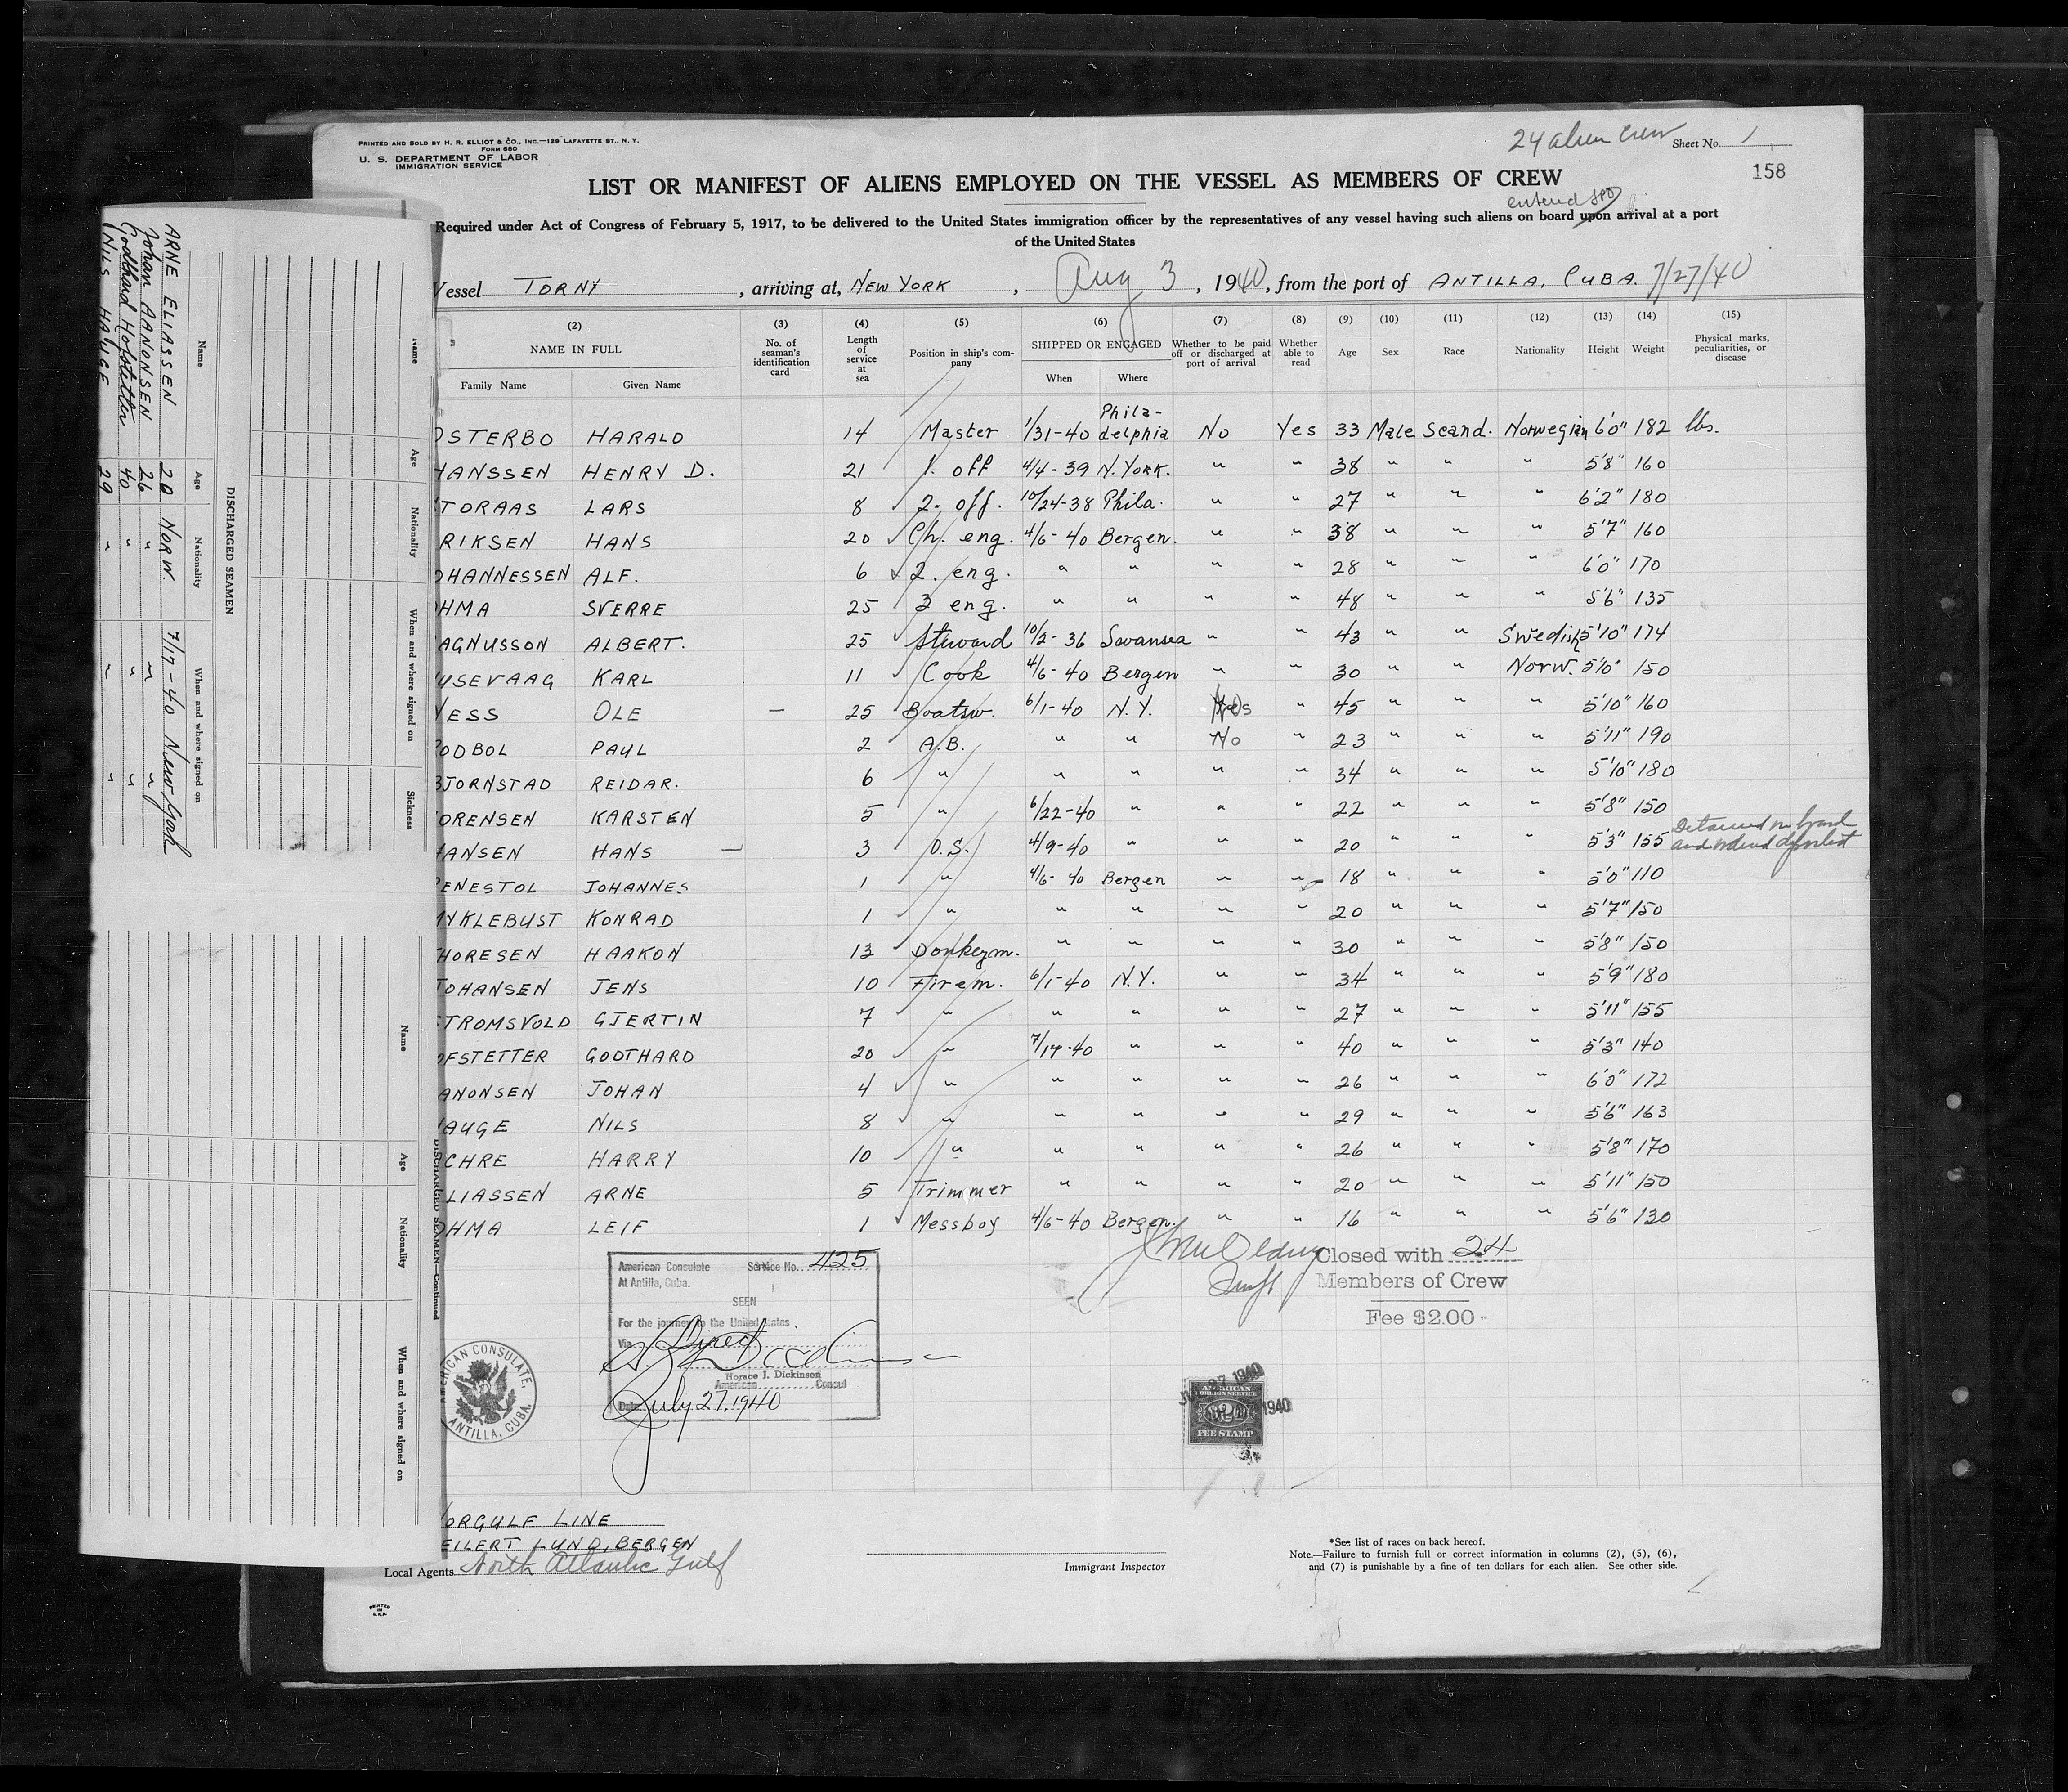 PRINTED AND SOLD BY H. R. ELLIOT & CO., INC.—129 LAFAYETTE ST., N. Y.
FORM 680
U. S. DEPARTMENT OF LABOR
IMMIGRATION SERVICE
24 alien crew Sheet No. 1
158
LIST OR MANIFEST OF ALIENS EMPLOYED ON THE VESSEL AS MEMBERS OF CREW
entered
Required under Act of Congress of February 5, 1917, to be delivered to the United States immigration officer by the representatives of any vessel having such aliens on board upon arrival at a port
of the United States
Vessel TORNY, arriving at, NEW YORK, Aug 3, 1940, from the port of ANTILLA, CUBA. 7/27/40
(2) (3) (4) (5) (6) (7) (8) (9) (10) (11) (12) (13) (14) (15)
NAME IN FULL No. of seaman's identification card Length of service at sea Position in ship's company SHIPPED OR ENGAGED Whether to be paid off or discharged at port of arrival Whether able to read Age Sex Race Nationality Height Weight Physical marks, peculiarities, or disease
Family Name Given Name When Where
OSTERBO HARALD 14 Master 1/31-40 Philadelphia No Yes 33 Male Scand. Norwegian 6'0" 182 lbs.
HANSSEN HENRY D. 21 1. off 4/4-39 N.York. " " 38 " " " 5'8" 160
TORAAS LARS 8 2. off. 10/24-38 Phila. " " 27 " " " 6'2" 180
RIKSEN HANS 20 Ch. eng. 4/6-40 Bergen. " " 38 " " " 5'7" 160
OHANNESSEN ALF. 6 2. eng. " " " " 28 " " " 6'0" 170
HMA SVERRE 25 3 eng. " " " " 48 " " " 5'6" 135
AGNUSSON ALBERT. 25 Steward 10/2-36 Swansea " " 43 " " Swedish 5'10" 174
USEVAAG KARL 11 Cook 4/6-40 Bergen " " 30 " " Norw. 5'10" 150
NESS OLE — 25 Boatsw. 6/1-40 N.Y. " 45 " " " 5'10" 160
ODBOL PAUL 2 A.B. " " No " 23 " " " 5'11" 190
BJORNSTAD REIDAR. 6 " " " " " 34 " " " 5'10" 180
ORENSEN KARSTEN 5 " 6/22-40 " " " 22 " " " 5'8" 150
HANSEN HANS — 3 O.S. 4/9-40 " " " 20 " " " 5'3" 155 Detained on board and ordered deported
ENESTOL JOHANNES 1 " 4/6-40 Bergen " " 18 " " " 5'0" 110
MYKLEBUST KONRAD 1 " " " " " 20 " " " 5'7" 150
HORESEN HAAKON 13 Donkeym. " " " " 30 " " " 5'8" 150
JOHANSEN JENS 10 Firem. 6/1-40 N.Y. " " 34 " " " 5'9" 180
TROMSVOLD GJERTIN 7 " " " " " 27 " " " 5'11" 155
OFSTETTER GODTHARD 20 " 7/17-40 " " " 40 " " " 5'3" 140
ANONSEN JOHAN 4 " " " " " 26 " " " 6'0" 172
HAUGE NILS 8 " " " " " 29 " " " 5'6" 163
CHRE HARRY 10 " " " " " 26 " " " 5'8" 170
LIASSEN ARNE 5 Trimmer " " " " 20 " " " 5'11" 150
OHMA LEIF 1 Messboy 4/6-40 Bergen. " " 16 " " " 5'6" 130
Closed with 24
Members of Crew
Fee $2.00
American Consulate Service No. 425
At Antilla, Cuba.
SEEN
For the journey to the United States.
Via Direct
Horace J. Dickinson
American Consul
Date July 27, 1940
AMERICAN CONSULATE,
ANTILLA, CUBA.
JUL 27 1940
AMERICAN
FOREIGN SERVICE
FEE STAMP
NORGULF LINE
EILERT LUND, BERGEN
Local Agents North Atlantic Gulf
Immigrant Inspector
*See list of races on back hereof.
Note.—Failure to furnish full or correct information in columns (2), (5), (6),
and (7) is punishable by a fine of ten dollars for each alien. See other side.
PRINTED IN U.S.A.
DISCHARGED SEAMEN
Name Age Nationality When and where signed on
ARNE ELIASSEN 20 NORW. 7/17-40 New York
Johan AANONSEN 26 " " "
Godthard Hofstetter 40 " " "
NILS HAUGE 29 " " "
Name Age Nationality When and where signed on Sickness
DISCHARGED SEAMEN—Continued
Name Age Nationality When and where signed on